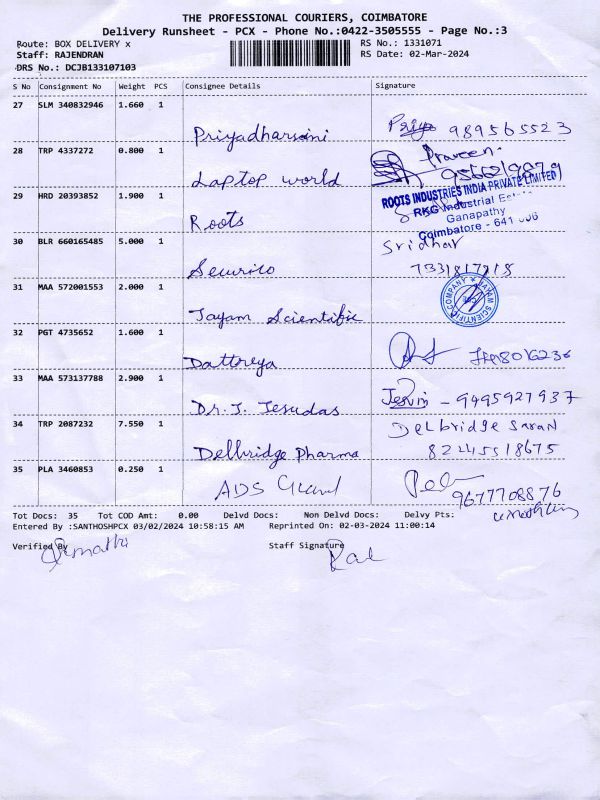 THE PROFESSIONAL COURIERS, COIMBATORE
Delivery Runsheet - PCX - Phone No.:0422-3505555 - Page No.:3
Route: BOX DELIVERY x RS No.: 1331071
Staff: RAJENDRAN RS Date: 02-Mar-2024
DRS No.: DCJB133107103
S No Consignment No Weight PCS Consignee Details Signature
27 SLM 340832946 1.660 1
Priyadharsini Priya 989565523
28 TRP 4337272 0.800 1 Praveen.
Laptop world
29 HRD 20393852 1.900 1 ROOTS INDUSTRIES INDIA PRIVATE LIMITED
RKG Industrial
Ganapathy
Roots Coimbatore - 641 006
30 BLR 660165485 5.000 1 Sridhar
Securico 7331817218
31 MAA 572001553 2.000 1 JAYAM SCIENTIFIC COMPANY
Jayam Scientific
32 PGT 4735652 1.600 1
Dattreya
33 MAA 573137788 2.900 1
Dr. J. Jesudas Jesvin - 9495927937
34 TRP 2087232 7.550 1 Delbridge Saran
Delbridge Pharma 82245518675
35 PLA 3460853 0.250 1
ADS 9677708876
Tot Docs: 35 Tot COD Amt: 0.00 Delvd Docs: Non Delvd Docs: Delvy Pts:
Entered By :SANTHOSHPCX 03/02/2024 10:58:15 AM Reprinted On: 02-03-2024 11:00:14
Verified By Staff Signature